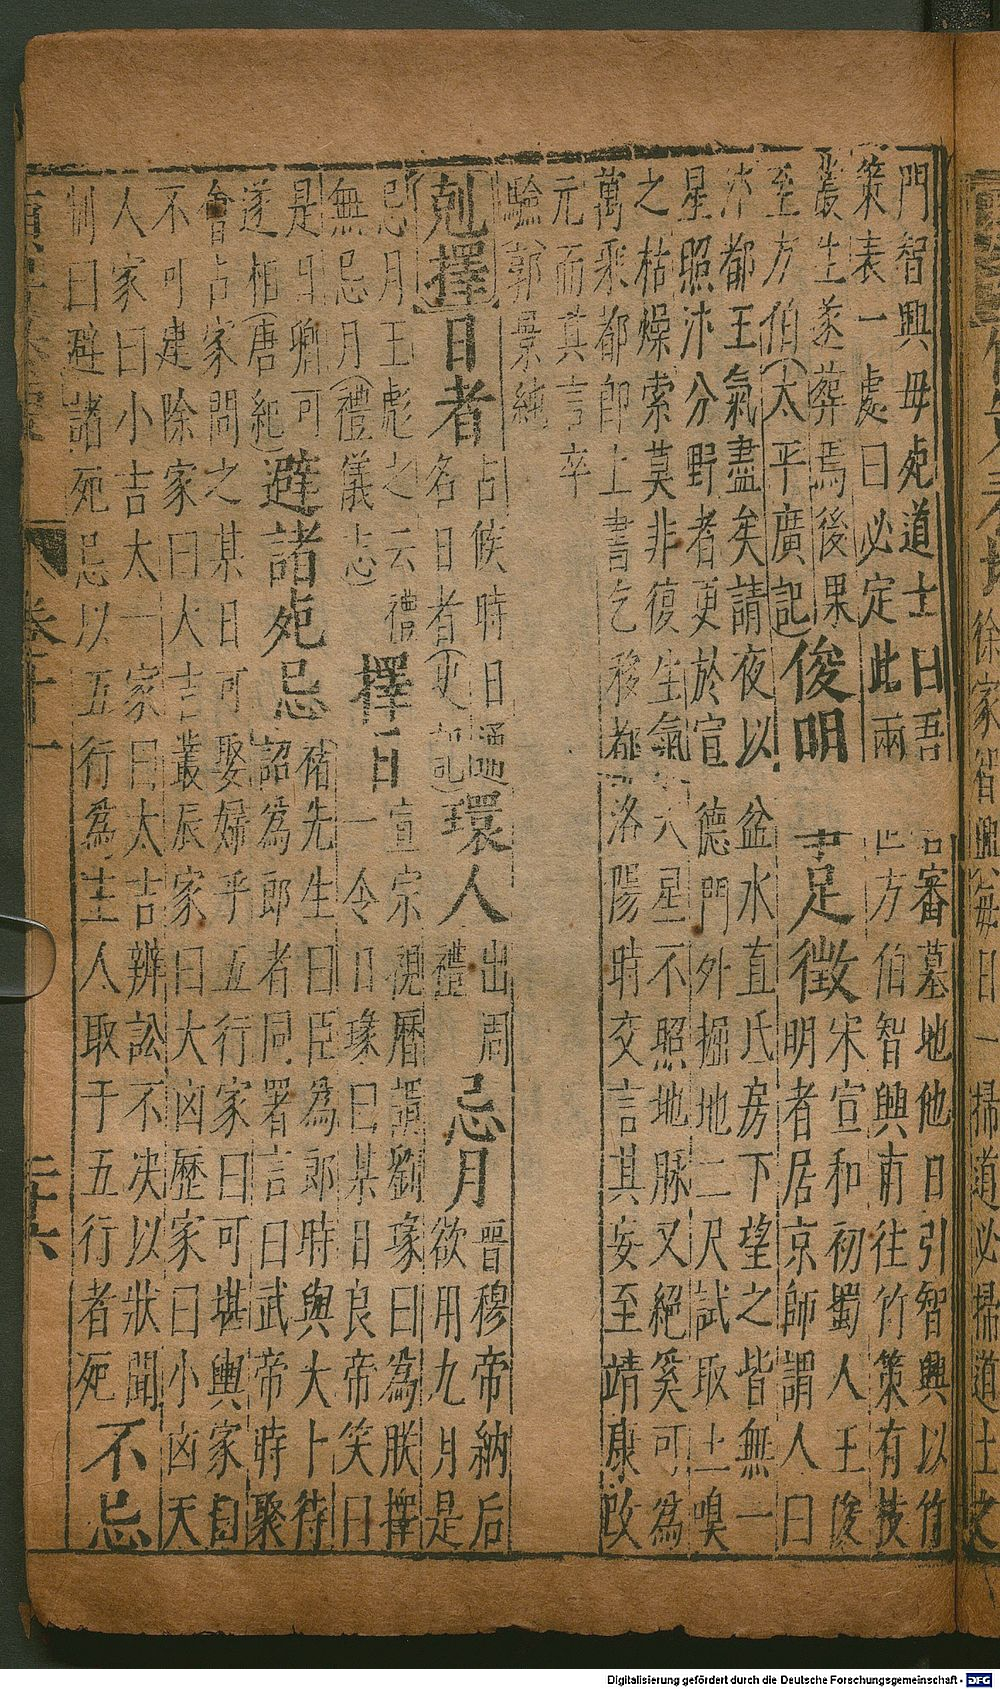 門智興毋死道士日吾 審墓地他日引智興以竹
策表一處日必定此兩 方伯智興甫往竹策有枝
叢生遂葬焉後果
至方伯太平廣記 俊明
宋宣和初蜀人王俊
足徵 明者居京師謂人曰
汴都王氣盡矣請夜以盆水直氐房下望之皆無一
星照汴分野者更於宣德門外掘地二尺試取土嗅
之枯燥索莫非復生氣 星不照地脉又絕奚可為
萬乘都即上書乞移都洛陽時交言其妄至靖康改
元而其言卒
驗 郭景純
剋擇 日者 占候時日通
名日者史記 環人 出周
禮 忌月 晉穆帝納后
欲用九月是
忌月王彪之云禮
無忌月禮儀志 擇日 宣宗視曆謂劉瑑曰為朕擇
一令日瑑曰某日良帝笑曰
是日卿可
遂相唐紀 避諸死忌 褚先生曰臣為郎時與大卜待
詔為郎者同署言曰武帝時聚
會占家問之某日可娶婦乎五行家曰可堪輿家曰
不可建除家曰大吉叢辰家曰大凶歷家曰小凶天
人家曰小吉太一家曰太吉辨訟不决以狀聞
制曰避諸死忌以五行為主人取于五行者死 不忌
卷十一
二十六
Digitalisierung gefördert durch die Deutsche Forschungsgemeinschaft - DFG